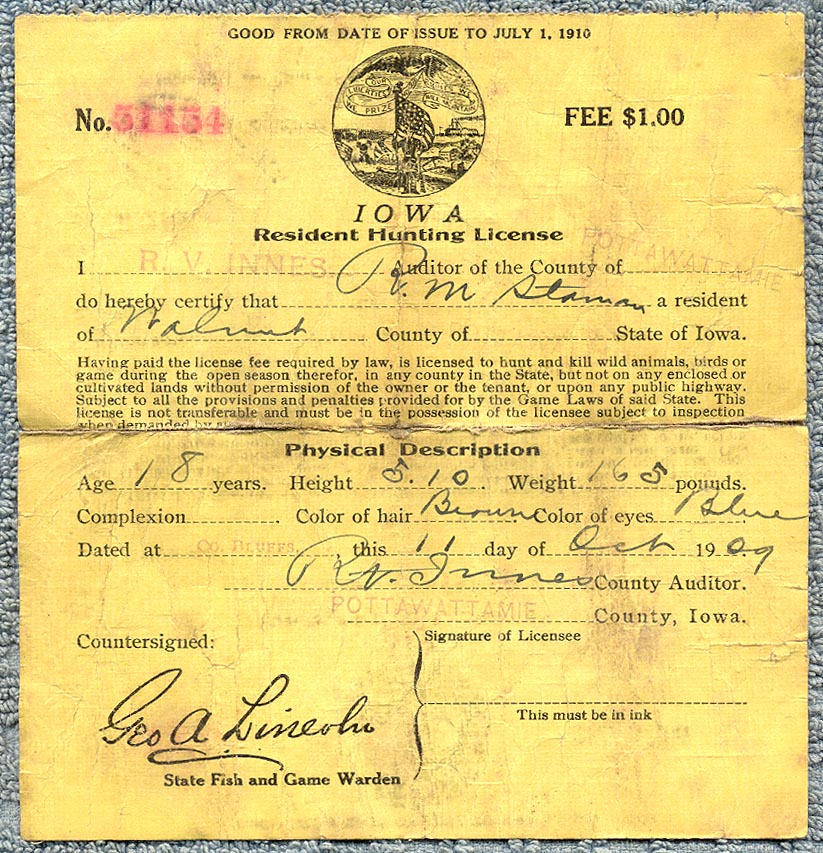 GOOD FROM DATE OF ISSUE TO JULY 1, 1910
OUR LIBERTIES WE PRIZE
No. 51154
FEE $1.00
IOWA
Resident Hunting License
I R. V. INNES Auditor of the County of POTTAWATTAMIE
do hereby certify that R. M Staman a resident
of Walnut County of State of Iowa.
Having paid the license fee required by law, is licensed to hunt and kill wild animals, birds or
game during the open season therefor, in any county in the State, but not on any enclosed or
cultivated lands without permission of the owner or the tenant, or upon any public highway.
Subject to all the provisions and penalties provided for by the Game Laws of said State. This
license is not transferable and must be in the possession of the licensee subject to inspection
when demanded by
Physical Description
Age 18 years. Height 5.10. Weight 165 pounds.
Complexion. Color of hair Brown Color of eyes Blue
Dated at Co. Bluffs, this 11 day of Oct 1909.
R.V. Innes County Auditor.
POTTAWATTAMIE County, Iowa.
Countersigned:
Signature of Licensee
Geo A Lincoln
This must be in ink
State Fish and Game Warden